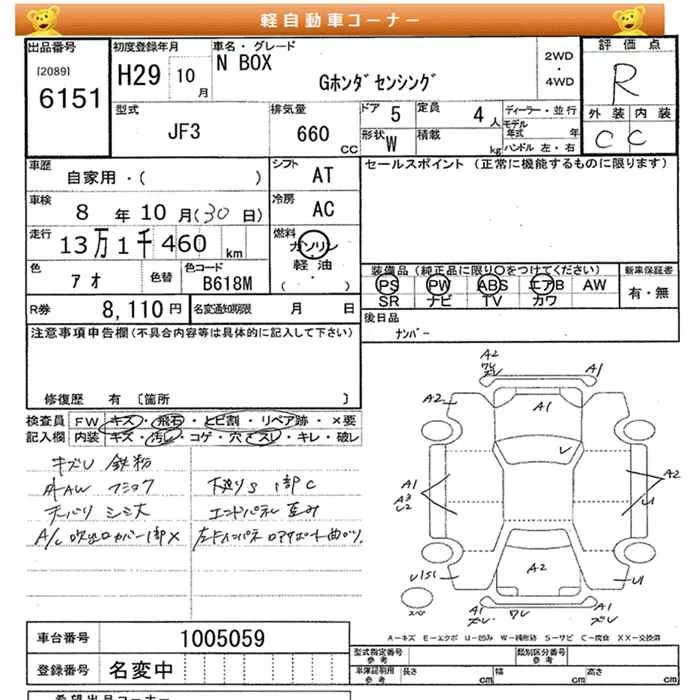 軽自動車コーナー
出品番号
[2089]
6151
初度登録年月
H29 10月
車名・グレード
N BOX
Gホンダセンシング
2WD
・
4WD
評価点
R
外装 内装
C C
型式
JF3
排気量
660 CC
ドア 5
定員 4人
形状 W
積載 kg
ディーラー・並行
モデル年式 年
ハンドル 左・右
車歴
自家用・( )
シフト AT
セールスポイント (正常に機能するものに限ります)
車検
8年10月(30日)
冷房 AC
走行
13万1千460km
燃料
ガソリン
・
軽油
・
( )
色 アオ
色替
色コード B618M
装備品(純正品に限り○をつけてください)
新車保証書
PS PW ABS エアB AW
SR ナビ TV カワ
有・無
R券 8,110円
名変通知期限 月 日
後日品
ナンバー
注意事項申告欄(不具合内容等は具体的に記入して下さい)
修復歴 有 [箇所 ]
検査員記入欄
FW キズ・飛石・ヒビ割・リペア跡・×要
内装 キズ・汚レ・コゲ・穴・スレ・キレ・破レ
キズU 鉄粉
外AW
天バリ シミ大
A/C 吹出口カバー1部X
下廻りS 1部C
エンドパネル 歪み
A2
A1
A2
A1
V
A1
A3
U2
A2
U1
A2
U1S1
U1
A1
ズレ
ワレ
A1
ズレ
スペア
A-キズ E-エクボ U-凹み W-補修跡 S-サビ C-腐食 XX-交換済
車台番号 1005059
登録番号 名変中
型式指定番号 参考
類別区分番号 参考
車庫証明用 参考
長さ cm
幅 cm
高さ cm
希望出品コーナー